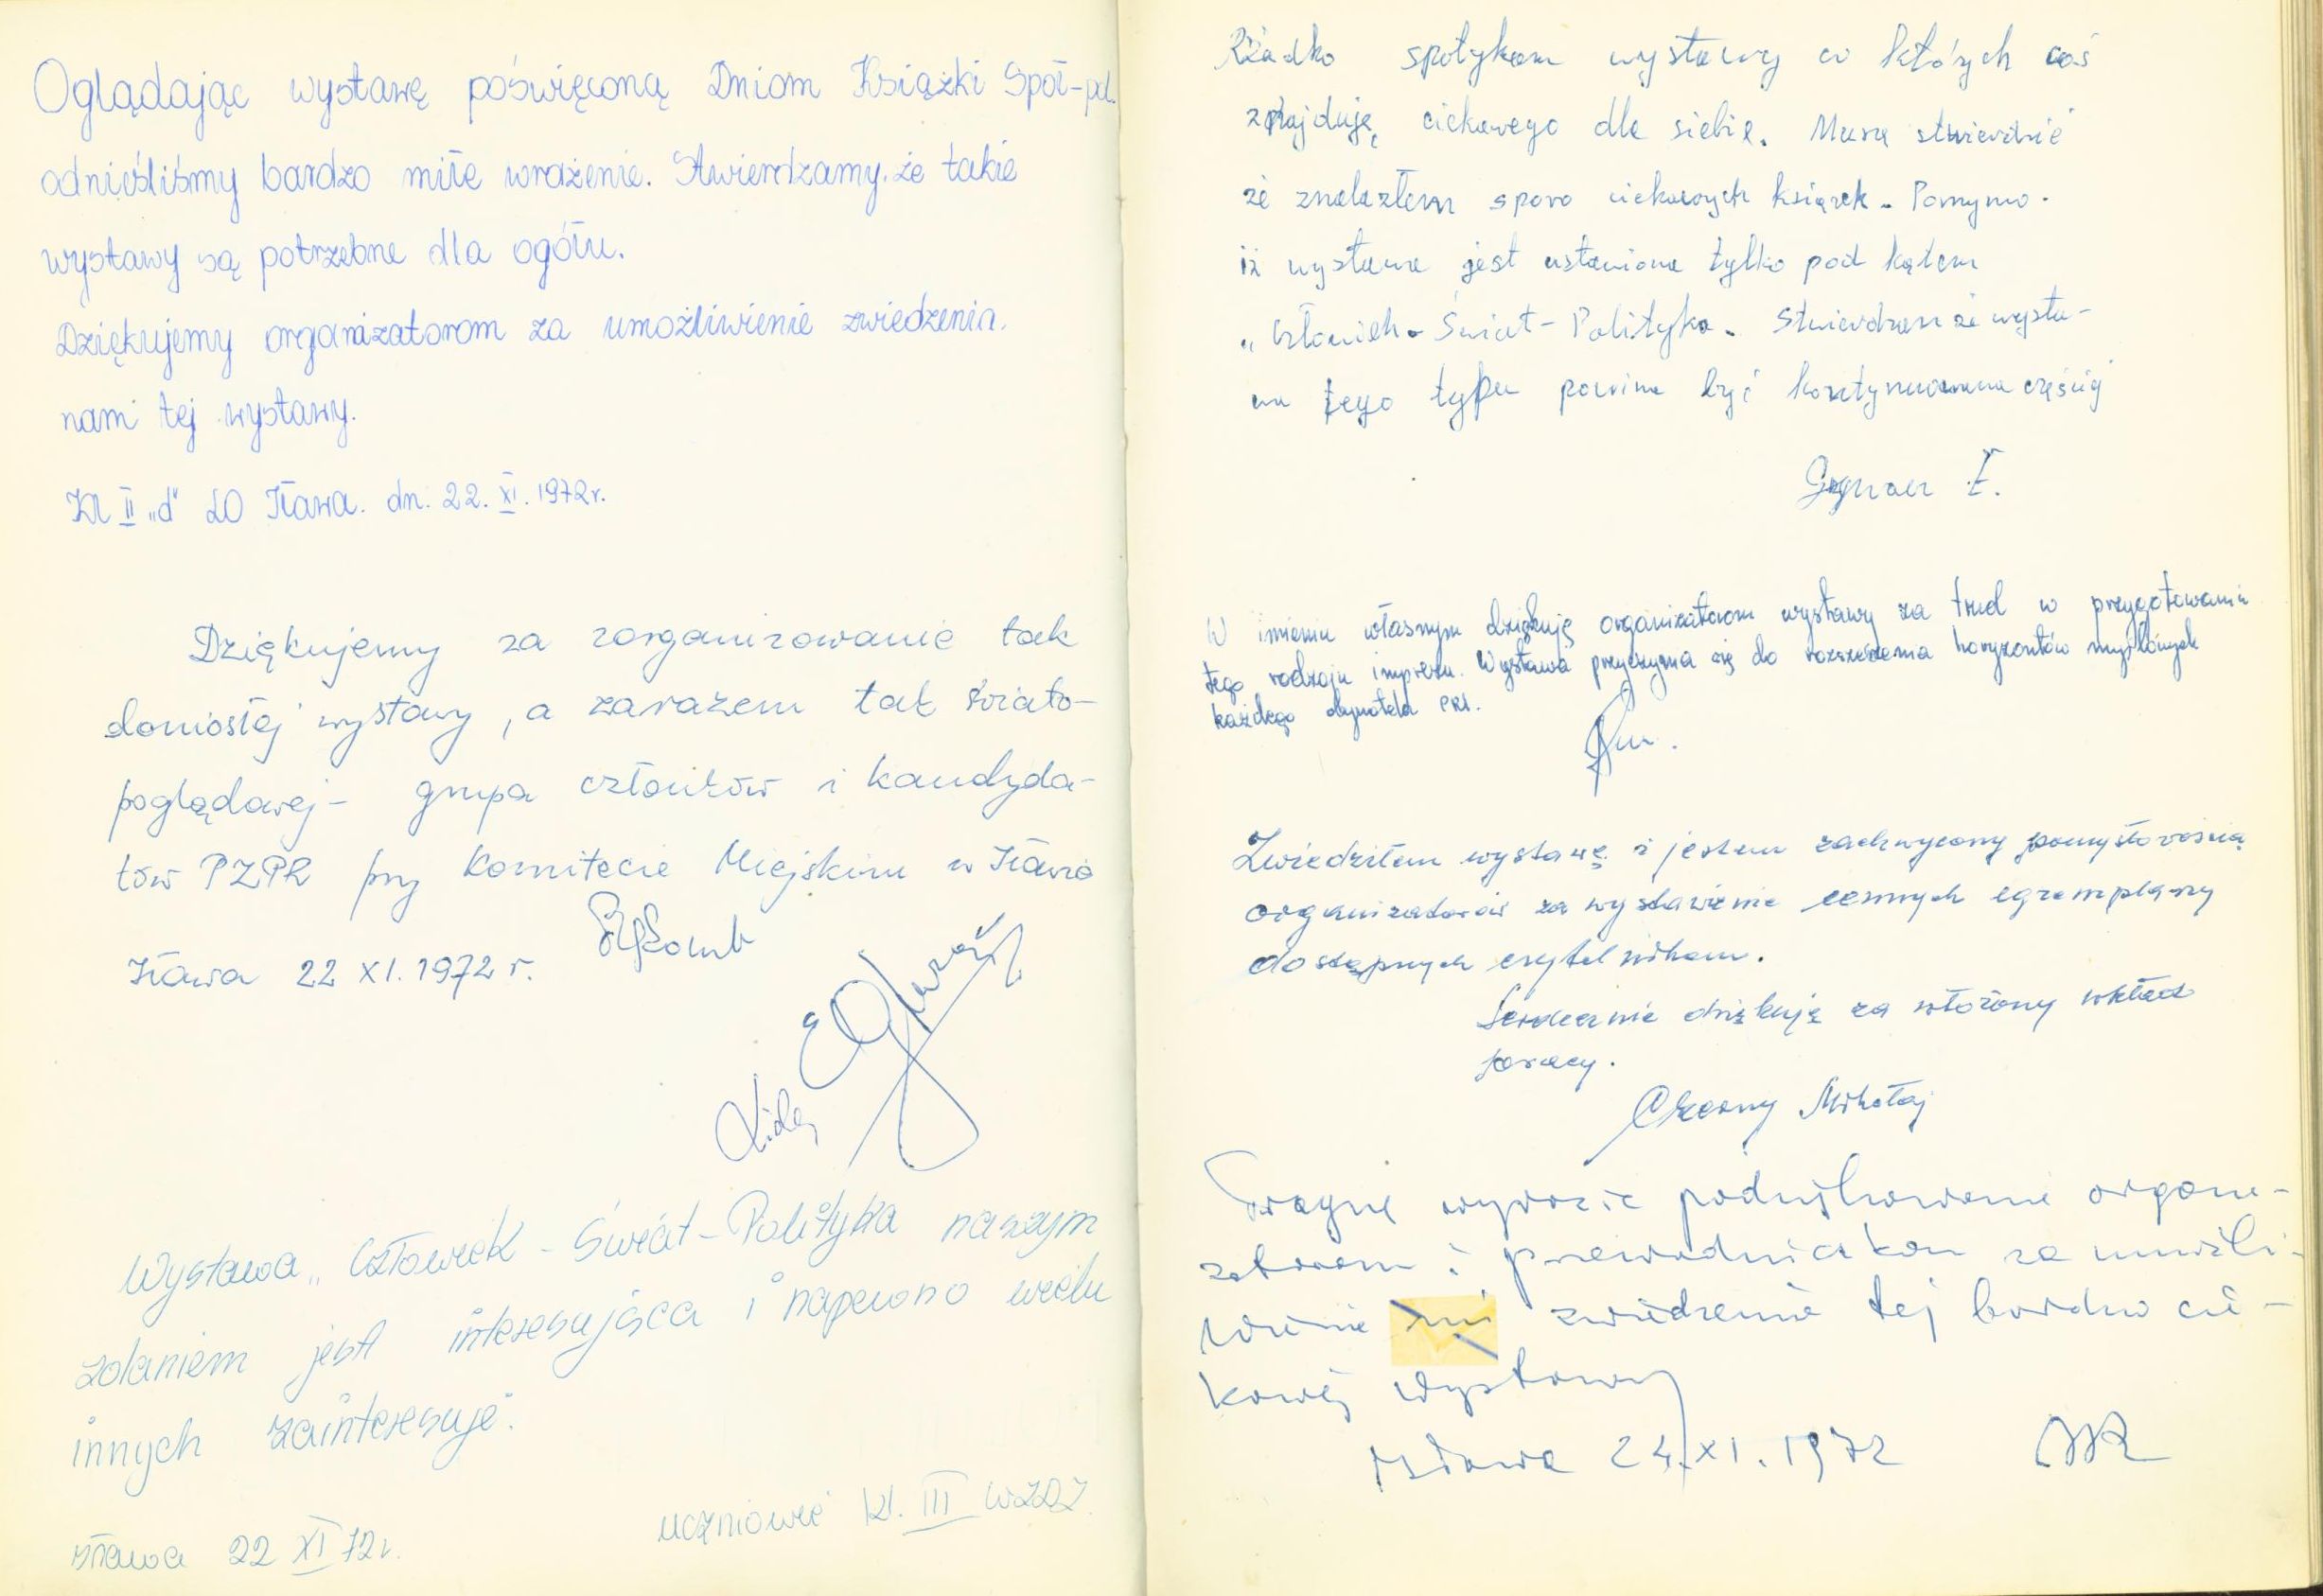 Oglądając wystawę poświęconą Dniom Książki Społ-pol.
odnieśliśmy bardzo miłe wrażenie. Stwierdzamy, że takie
wystawy są potrzebne dla ogółu.
Dziękujemy organizatorom za umożliwienie zwiedzenia
nam tej wystawy.
Kl II „d" LO Iława. dn. 22. XI. 1972r.
Dziękujemy za zorganizowanie tak
doniosłej wystawy, a zarazem tak świato-
poglądowej - grupa członków i kandyda-
tów PZPR przy Komitecie Miejskim w Iławie
Iława 22 XI. 1972 r.
Wystawa „Człowiek - Świat - Polityka naszym
zdaniem jest interesująca i napewno wielu
innych zainteresuje.
uczniowie kl. III
Iława 22 XI 72r.
Rzadko spotykam wystawy w których coś
znajduję ciekawego dla siebie. Muszę stwierdzić
że znalazłem sporo ciekawych książek. Pomymo.
iż wystawa jest ustawiona tylko pod kątem
„Człowiek - Świat - Polityka. Stwierdzam że wysta-
wa tego typu powina być kontynuowana częściej
W imieniu własnym dziękuję organizatorom wystawy za trud w przygotowaniu
tego rodzaju imprezy. Wystawa przyczynia się do rozszerzenia horyzontów myślowych
każdego obywatela PRL.
Zwiedziłem wystawę i jestem zachwycony pomysłowością
organizatorów za wystawienie cennych egzemplarzy
dostępnych czytelnikom.
Serdecznie dziękuję za włożony wkład
pracy.
Czarny Mikołaj
Pragnę wyrazić podziękowanie organi-
zatorom i przewodniczkom za umożli-
wienie zwiedzenia tej bardzo cie-
kawej wystawy
Iława 24.XI.1972